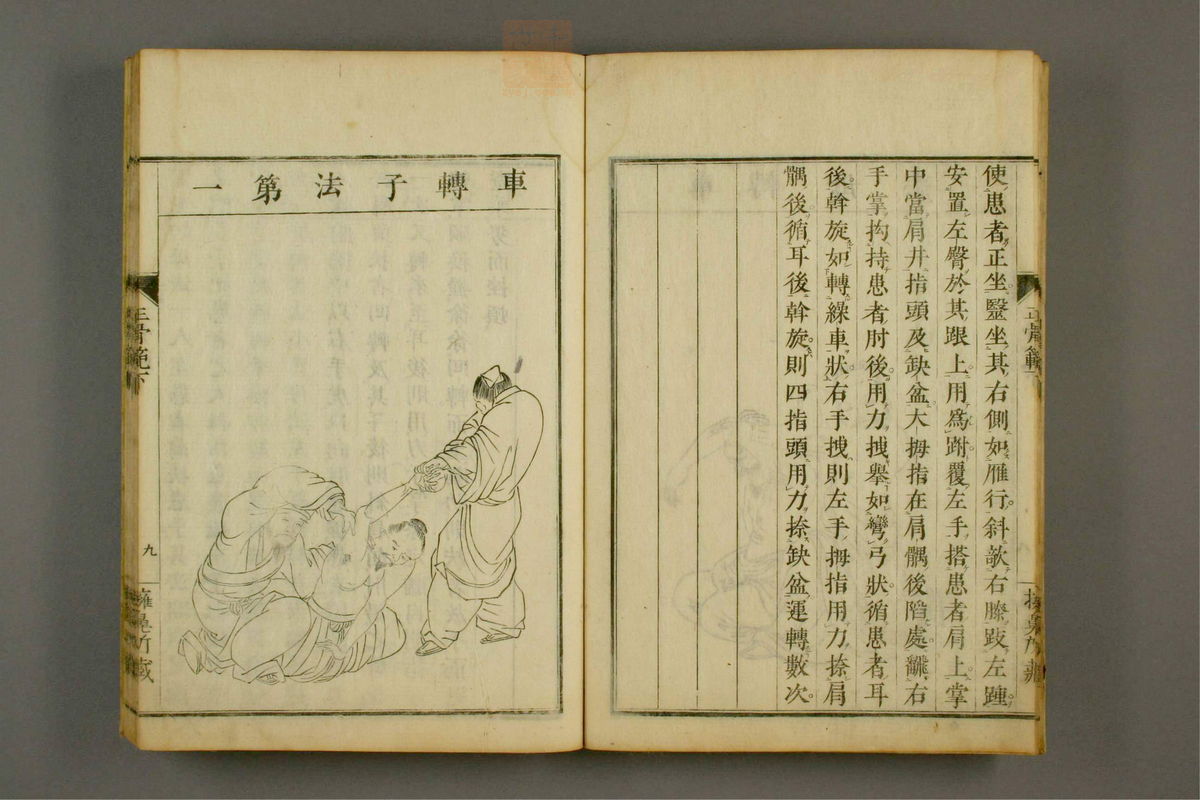 使患者正坐醫坐其右側如雁行斜欹右膝跂左踵
安置左臀於其跟上用爲跗覆左手搭患者肩上掌
中當肩井指頭及缺盆大拇指在肩髃後陷處右
手掌拘持患者肘後用力拽舉如彎弓狀循患者耳
後斡旋如轉繰車狀右手拽則左手拇指用力捺肩
髃後循耳後斡旋則四指頭用力捺缺盆運轉數次
車轉子法第一
正骨範下
九